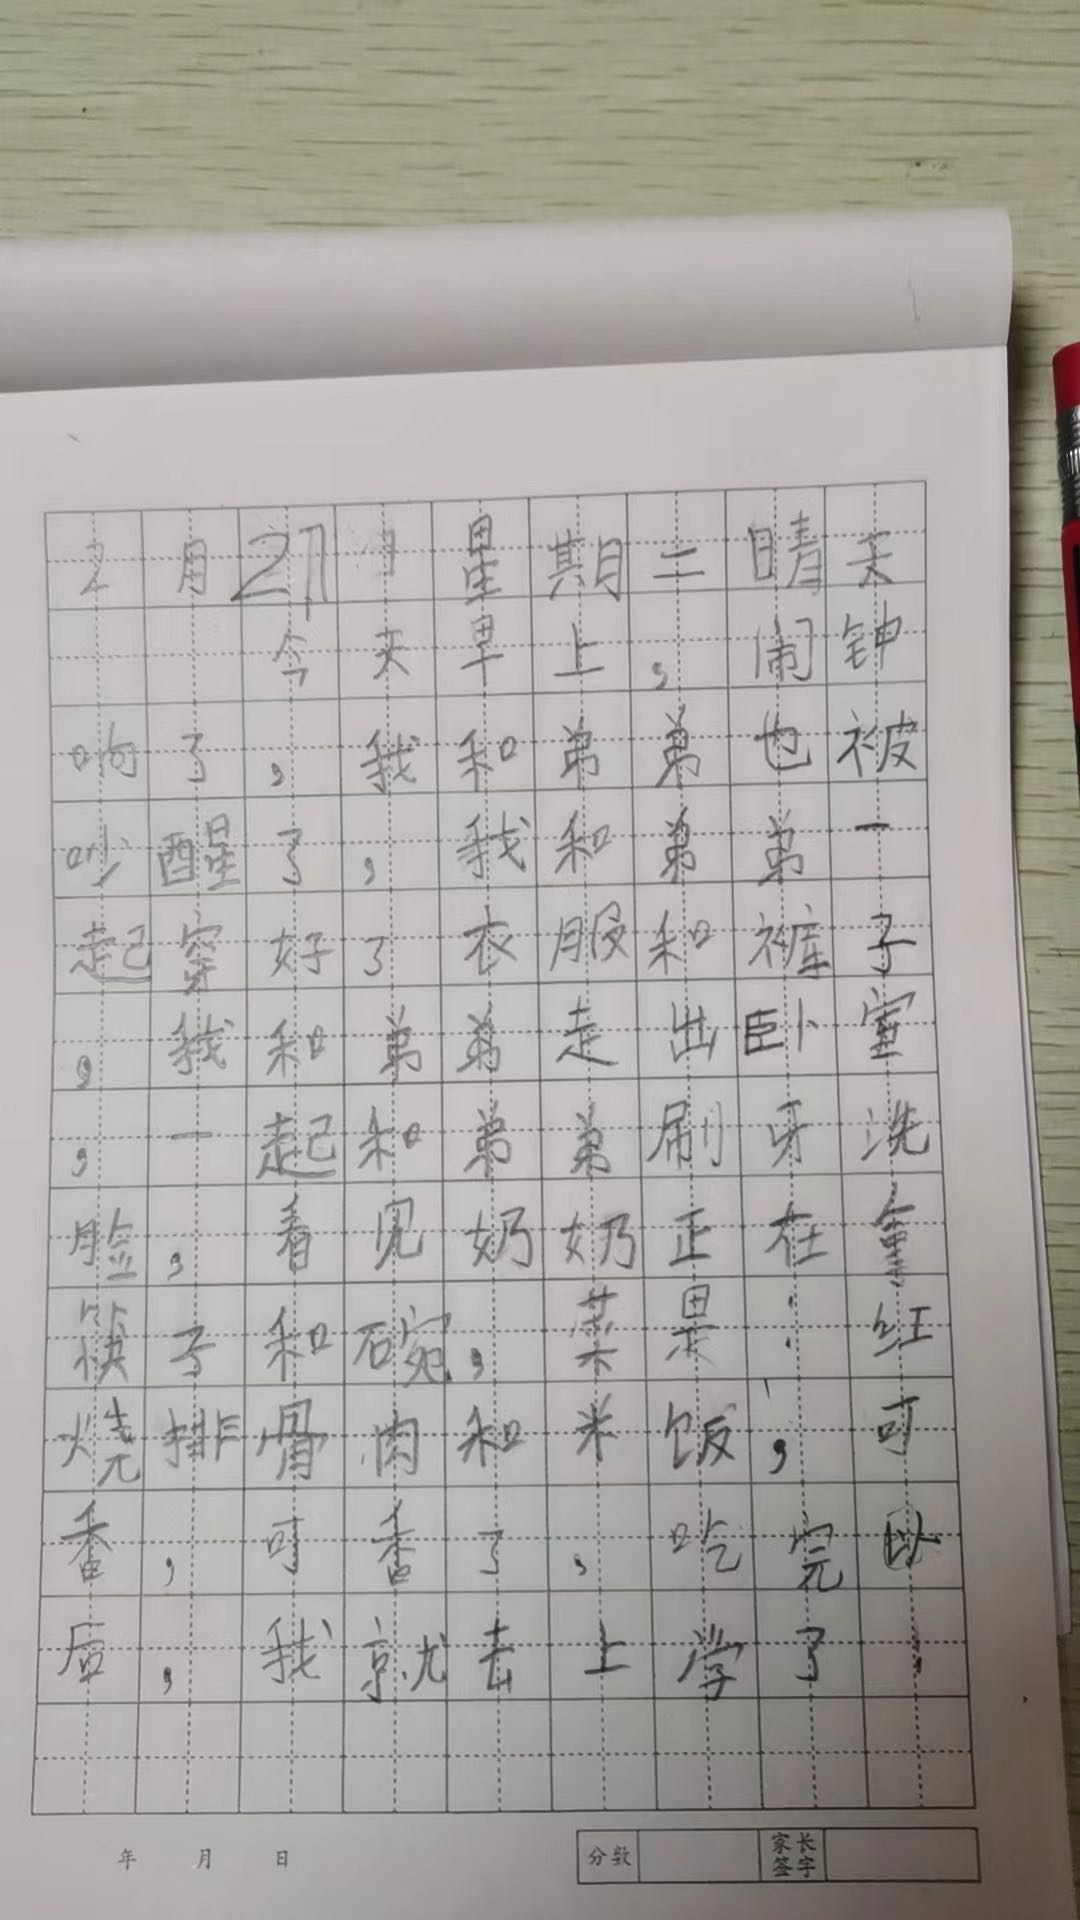 2月21日星期二晴天
今天早上，闹钟
响了，我和弟弟也被
吵醒了，我和弟弟一
起穿好了衣服和裤子
，我和弟弟走出卧室
，一起和弟弟刷牙洗
脸，看见奶奶正在拿
筷子和碗，菜是：红
烧排骨肉和米饭，可
香，可香了，吃完
后，我就去上学了！
年 月 日
分数
家长签字